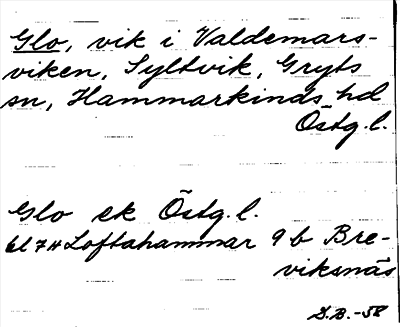 Glo, vik i Valdemars-
viken, Syltvik, Gryts
sn, Hammarkinds hd
Östg.l.
Glo ek Östg.l.
bl 7H Loftahammar 9 b Bre-
viksnäs
S.B.-58